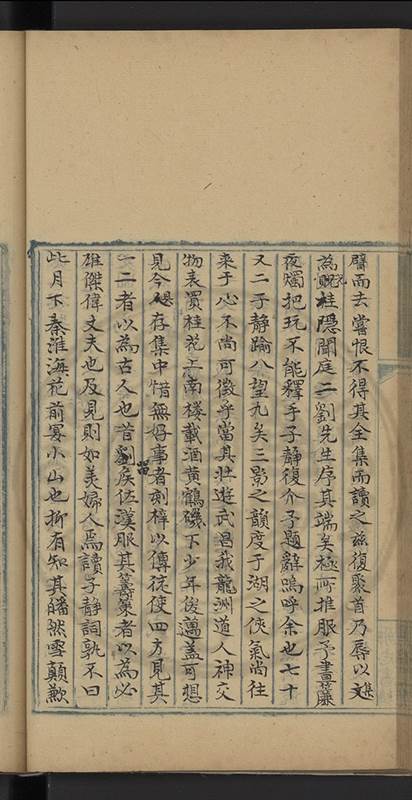 臂而去嘗恨不得其全集而讀之茲復聚首乃辱以文集
為貺桂隱閒庭二劉先生序其端矣極所推服予晝簾
夜燭把玩不能釋手子靜復介予題辭嗚呼余也七十
又二子靜踰八望九矣三影之韻度于湖之俠氣尚往
来于心不尚可徵乎當其壯遊武昌我龍洲道人神交
物表買桂花上南樓載酒黄鶴磯下少年俊邁盖可想
見今存集中惜無好事者刻梓以傳徒使四方見其
一二者以為古人也昔留侯佐漢服其籌策者以為必
雄傑偉丈夫也及見則如美婦人焉讀子靜詞孰不曰
此月下秦淮海花前晏小山也抑有知其皤然雪顛歟